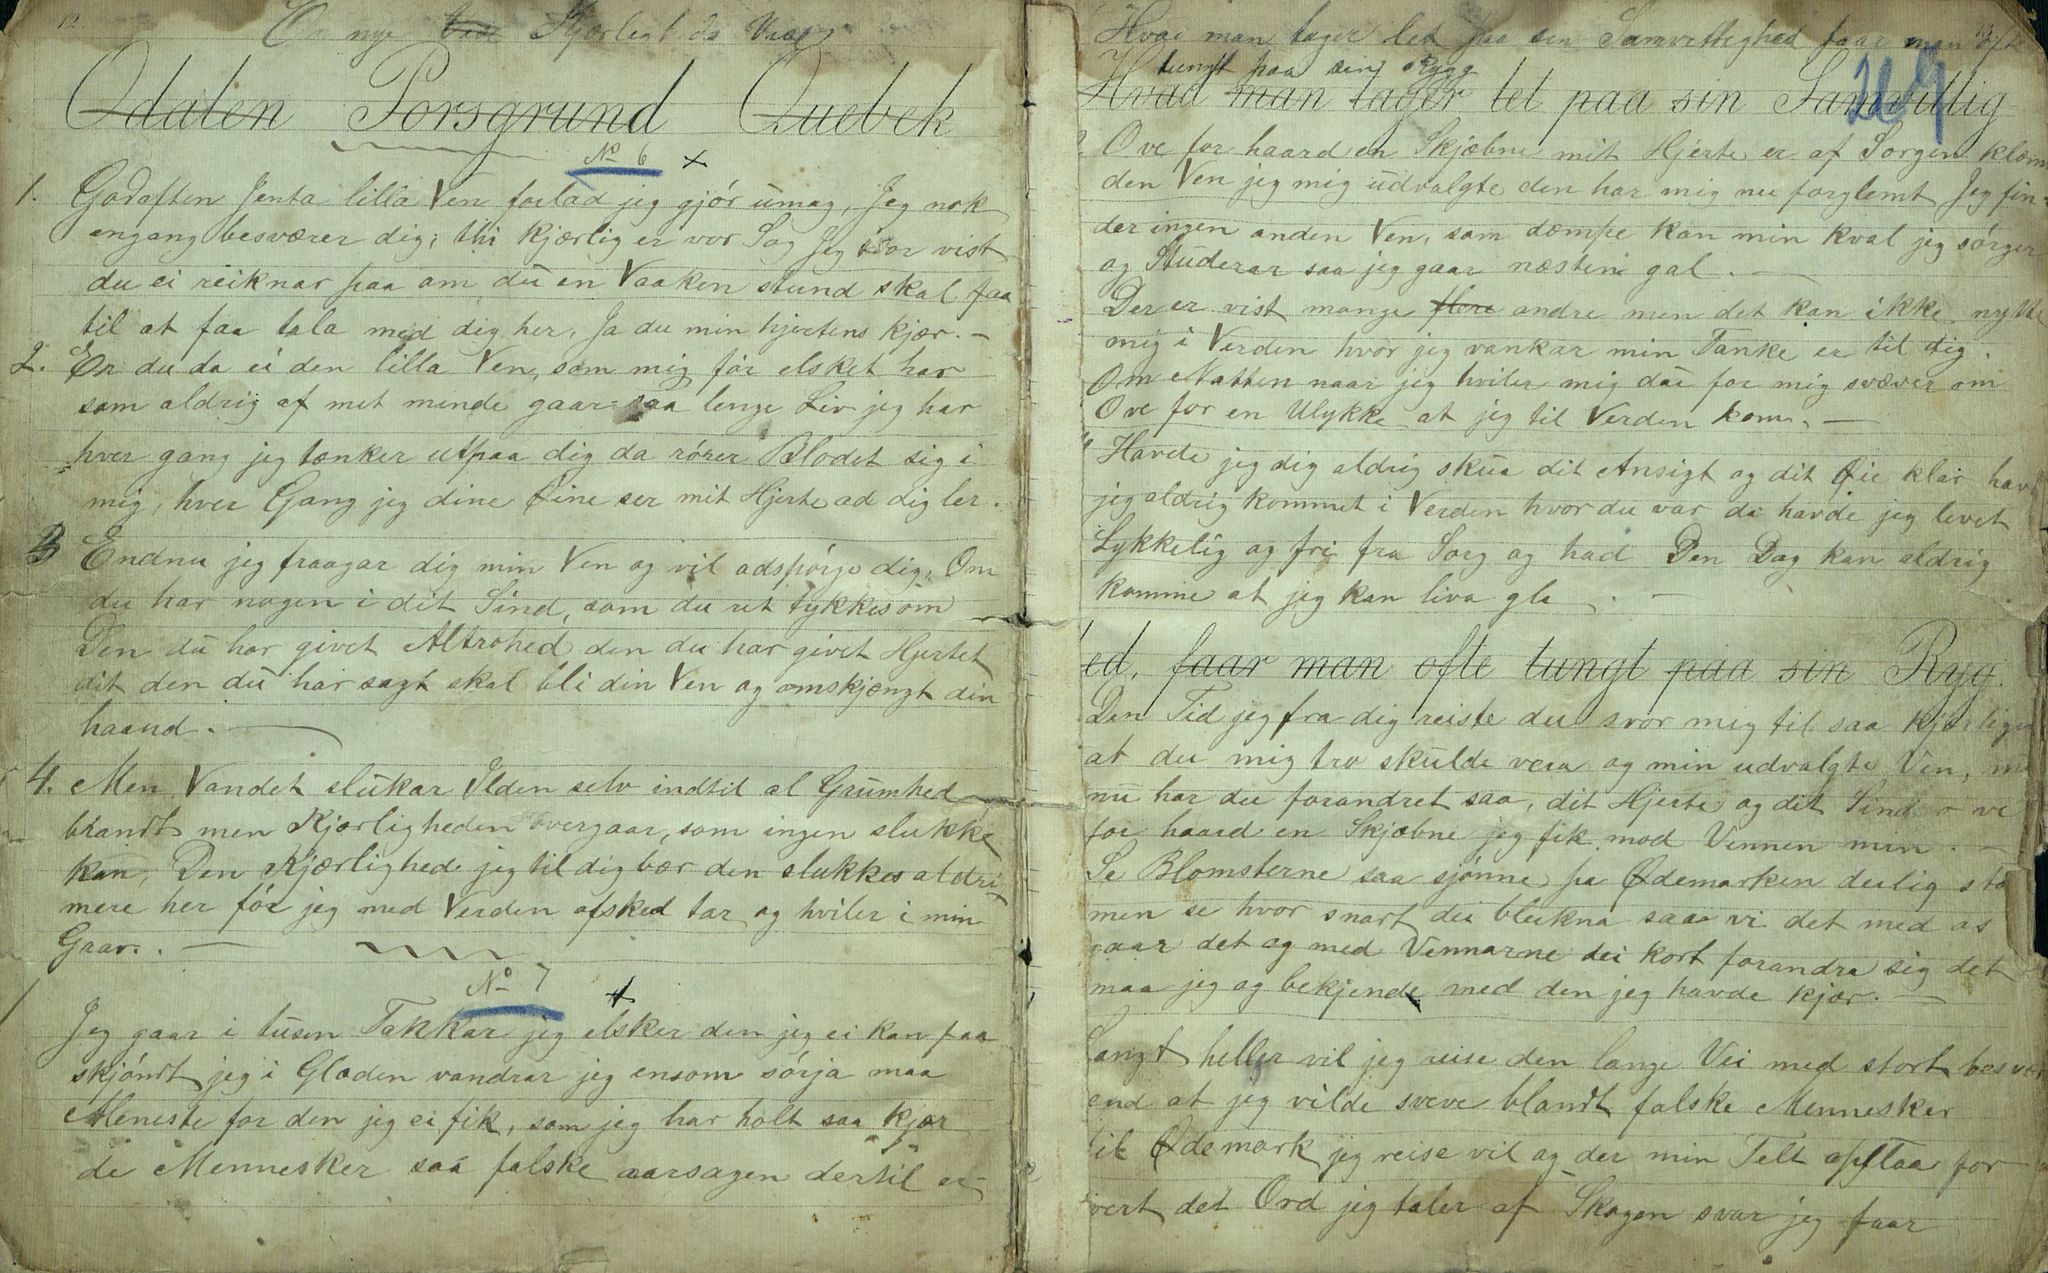 12.
En nye Kjærligheds Vise
Odalen Porsgrund Quebek
No 6 x
1. Godaften Jenta lilla Ven forlad jeg gjór umag, Jeg nok
engang besværer dig; thi kjærlig er vor Sag Jeg tror vist
du ei reiknar paa om du en Vaaken stund skal faa
til at faa tala med dig her, Ja du min hjertens kjær. —
2. Er du da ei den lilla Ven, som mig fór elsket har
som aldrig af met minde gaar saa lenge Liv jeg har
hver gang jeg tænker utpaa dig da rórer Blodet sig i
mig, hver Gang jeg dine Öine ser mit Hjerte ad dig ler.
3 Endnu jeg fraagar dig min Ven og vil adspórge dig, Om
du har nogen i dit Sind, som du ret tykkes om
Den du har givet Altrohed, den du har givet Hjertet
dit den du har sagt skal bli din Ven og omskjængt din
haand. —
4. Men Vandet slukar Ilden selv indtil al Grumhed
brandt men Kjærligheden overgaar, som ingen slukke
kan, Den Kjærlighed jeg til dig bær den slukkes aldri
mere her fór jeg med Verden afsked tar og hviler i min
Grav. —
No 7 x
1 Jeg gaar i tusen Takkar jeg elsker den jeg ei kan faa
skjóndt jeg i Glæden vandrar jeg ensom sórja maa
Meneste for den jeg ei fik, som jeg har holt saa kjær
de Mennesker saa falske aarsagen dertil er
13
Hvad man tager let paa sin Samvittighed faar man ofte
tungt paa sin Rygg
269
Hvad man tager let paa sin Samvittig
2. O ve for haard en Skjæbne mit Hjerte er af Sorgen klæmt
den Ven jeg mig udvalgte den har mig nu forglemt Jeg fin-
der ingen anden Ven, som dæmpe kan min kval jeg sórger
og Studerar saa jeg gaar næsten gal. —
Der er vist mange flere andre men det kan ikke nytte
mig i Verden hvor jeg vankar min Tanke er til dig.
Om Natten naar jeg hviler mig du for mig svæver om
O ve for en Ulykke at jeg til Verden kom. —
4 Havde jeg dig aldrig skua dit Ansigt og dit Öie klar hav
jeg aldrig kommet i Verden hvor du var da havde jeg levet
Lykkelig og fri fra Sorg og had Den Dag kan aldrig
komme at jeg kan liva gla . —
ed, faar man ofte tungt paa sin Ryg.
Den Tid jeg fra dig reiste du svor mig til saa kjærligen
at du mig tro skulde vera og min udvalgte Ven, m
nu har du forandret saa, dit Hjerte og dit Sind o ve
for haard en Skjæbne jeg fik mod Vennen min. —
Se Blomsterne saa sjónne pa Ødemarken deilig stå
men se hvor snart dei bleikna saa vi det med os
gaar det og med Vennarne dei kort forandra sig det
maa jeg og bekjende med den jeg havde kjær. —
Langt heller vil jeg reise den lange Vei med stort besvær
end at jeg vilde sveve blandt falske Mennesker
til Ødemark jeg reise vil og der min Telt opstaar for
hvert det Ord jeg taler af Skogen svar jeg faar